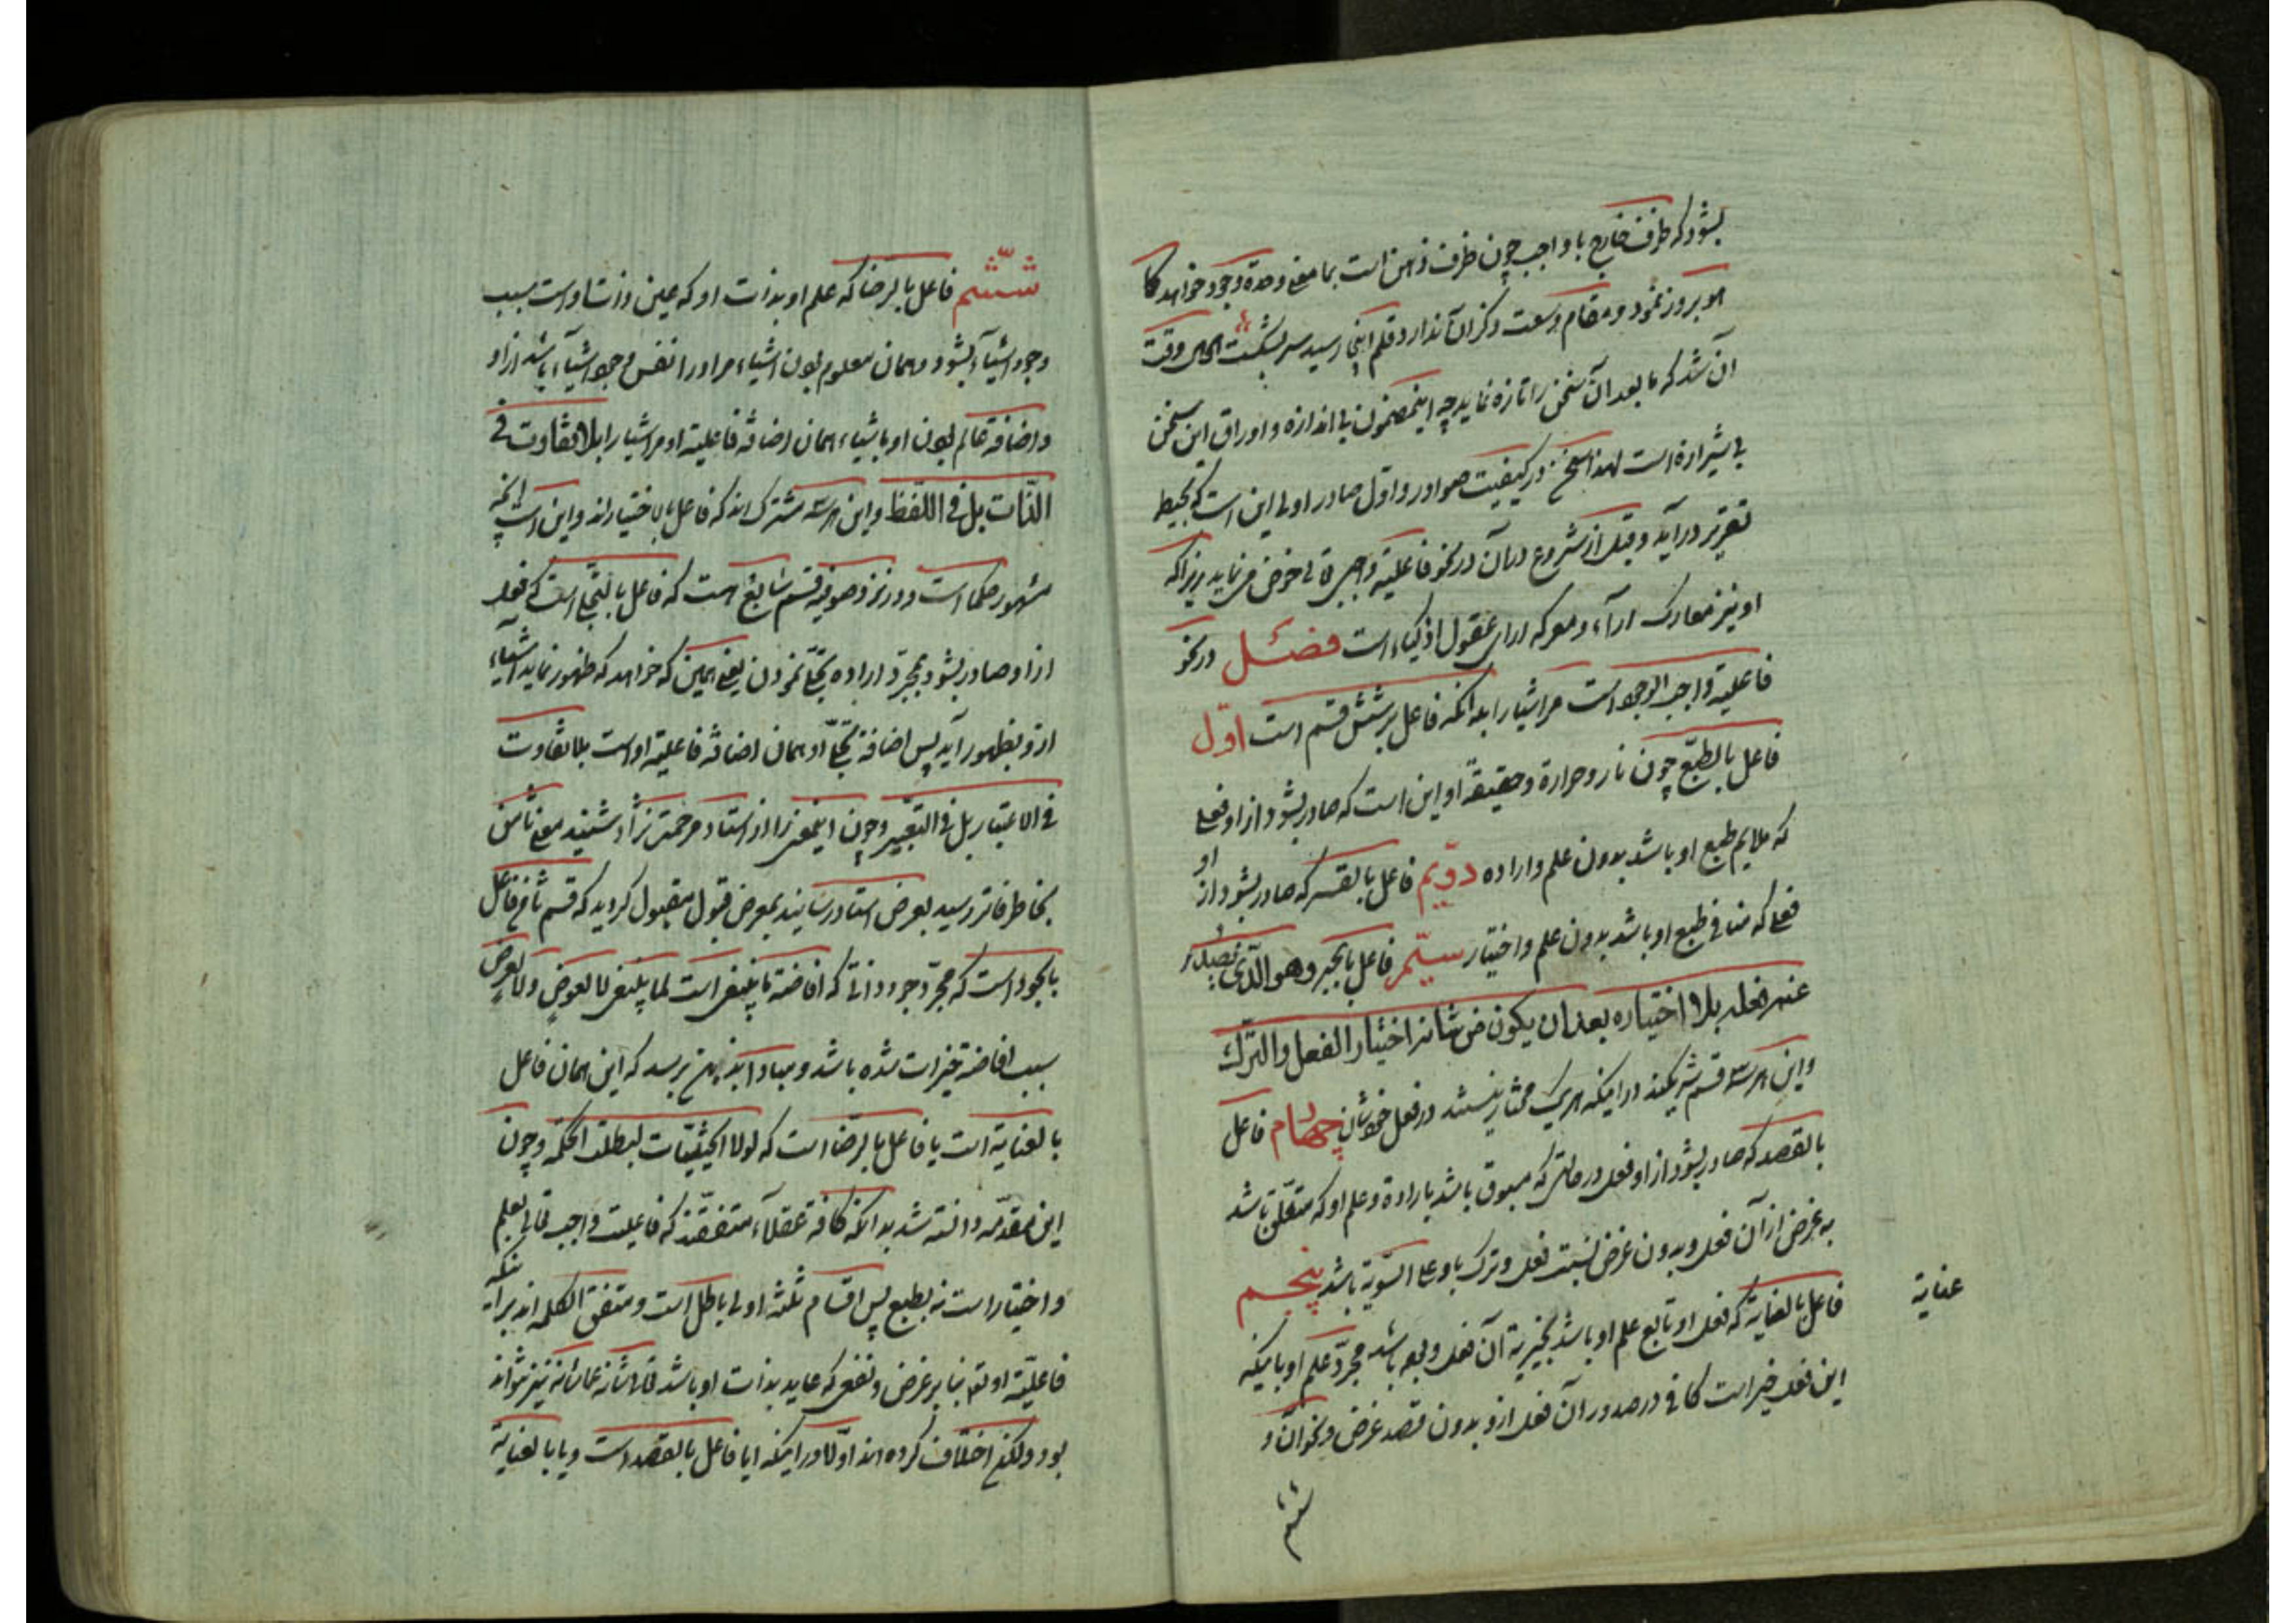 بشود که ظرف خارج با واجب چون ظرف ذهن است بما معنی وحدة وجود خواهد کا
هو بروز نمود و مقام وسعت ذکر آن ندارد قلم اینجا رسید سر بشکست الحال وقت
آن شد که ما بعد آن سخن را تازه نماید چه اینمضمون بی اندازه و اوراق این سخن
بی شیرازه است لهذا سخن در کیفیت صوادر و اول صادر اولی این است که بحیطه
تقریر در آید و قبل از شروع در آن در نحو فاعلیة واجب تعالی خوض می نماید زیرا که
او نیز معارک آراء و معرکه ارای عقول اذکیاء است فصل در نحو
فاعلیة واجب الوجود است مر اشیا را بدانکه فاعل بر شش قسم است اوّل
فاعل بالطبع چون نار و حرارة و حقیقة او این است که صادر بشود از او فعلی
که ملایم طبع او باشد بدون علم و اراده دویّم فاعل بالقسر که صادر بشود از او
فعلی که منافی طبع او باشد بدون علم و اختیار سیّم فاعل بالجبر وهو الّذی یصدر
عنه فعله بلا اختیاره بعد ان یکون من شانه اختیار الفعل والترک
و این هر سه قسم شریکند در اینکه هر یک مختار نیستند در فعل خودشان چهارم فاعل
بالقصد که صادر بشود از او فعل در حالتی که مسبوق باشد باراده و علم او که متعلق باشد
به غرض از آن فعل و بدون غرض نسبت فعل و ترک باو علی السّویة باشد پنجم
فاعل بالعنایة که فعل او تابع علم او باشد بخیریة آن فعل و بوده باشد مجرّد علم او باینکه
عنایة
این فعل خیر است کافی در صدور آن فعل ازو بدون قصد غرض و نحو آن و
ششم
ششّم فاعل بالرضا که علم او بذات او که عین ذات اوست سبب
وجود اشیآء بشود و همان معلوم بودن اشیاء مر او را نفس وجود اشیآء باشد از او
و اضافه عالم بودن او باشیاء همان اضافه فاعلیة او مر اشیا را بلا تفاوت فی
الذّات بل فی اللّفظ و این هر سه مشترک اند که فاعل باختیارند و این است آنچه
مشهور حکما است و در نزد صوفیه قسم سابع است که فاعل بالتجلی است که فعل
از او صادر بشود بمجرّد اراده تجلّی نمودن یعنی همین که خواهد که ظهور نماید اشیاء
ازو بظهور آید پس اضافة تجلّی او همان اضافه فاعلیة او است بلا تفاوت
فی الاعتبار بل فی التّعبیر و چون اینمعنی را از استاد مرحمت نژاد شنیدم معنی ثامن
بخاطر فاتر رسید بعرض استاد رسانید بمعرض قبول مقبول گردید که قسم ثامن فاعل
بالجود است که مجرّد جود ذاتی که افاضه ما ینبغی است لما ینبغی لا لعوض ولا لغرض
سبب افاضه خیرات شده باشد و مبادا بذهن برسد که این همان فاعل
بالعنایة است یا فاعل بالرضا است که لولا الحیثیّات لبطلت الحکمة و چون
این مقدّمه دانسته شد بدانکه کافه عقلآء متفقند که فاعلیت واجب تعالی بعلم
و اختیار است نه بطبع پس اقسام ثلثه اولی باطل است و متفق الکلمه اند بر آنکه
فاعلیّة او تع بنابر غرض و نفعی که عاید بذات او باشد تعالی شانه عما شانه نیز نتواند
بود ولکن اختلاف کرده اند اوّلا در اینکه ایا فاعل بالقصد است و یا بالعنایة